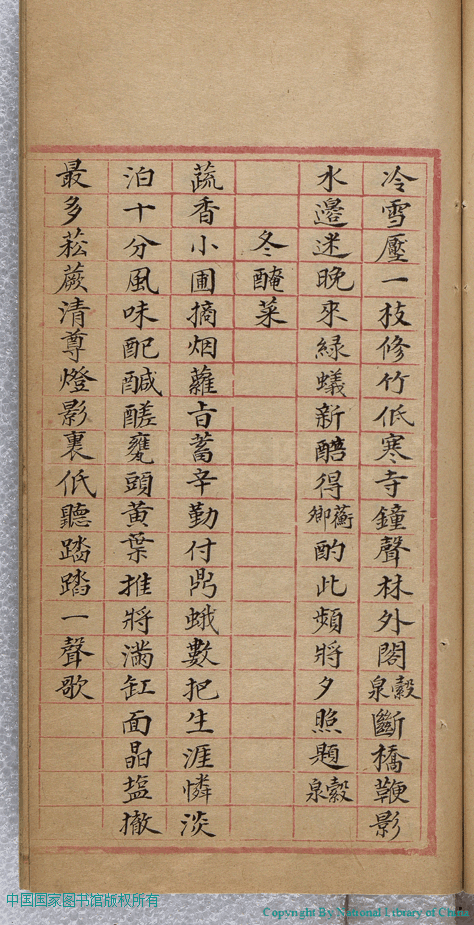 冷雪壓一枝修竹低寒寺鐘聲林外閣穀泉斷橋鞭影
水邊迷晚來綠蟻新醅得蘅卿酌此頻將夕照題穀泉
冬醃菜
蔬香小圃摘烟蘿旨蓄辛勤付鼎蛾數把生涯憐淡
泊十分風味配醎醝甕頭黃葉推將滿缸面晶塩撤
最多菘蕨清尊燈影裏低聽踏踏一聲歌
中国国家图书馆版权所有
Copyright By National Library of China